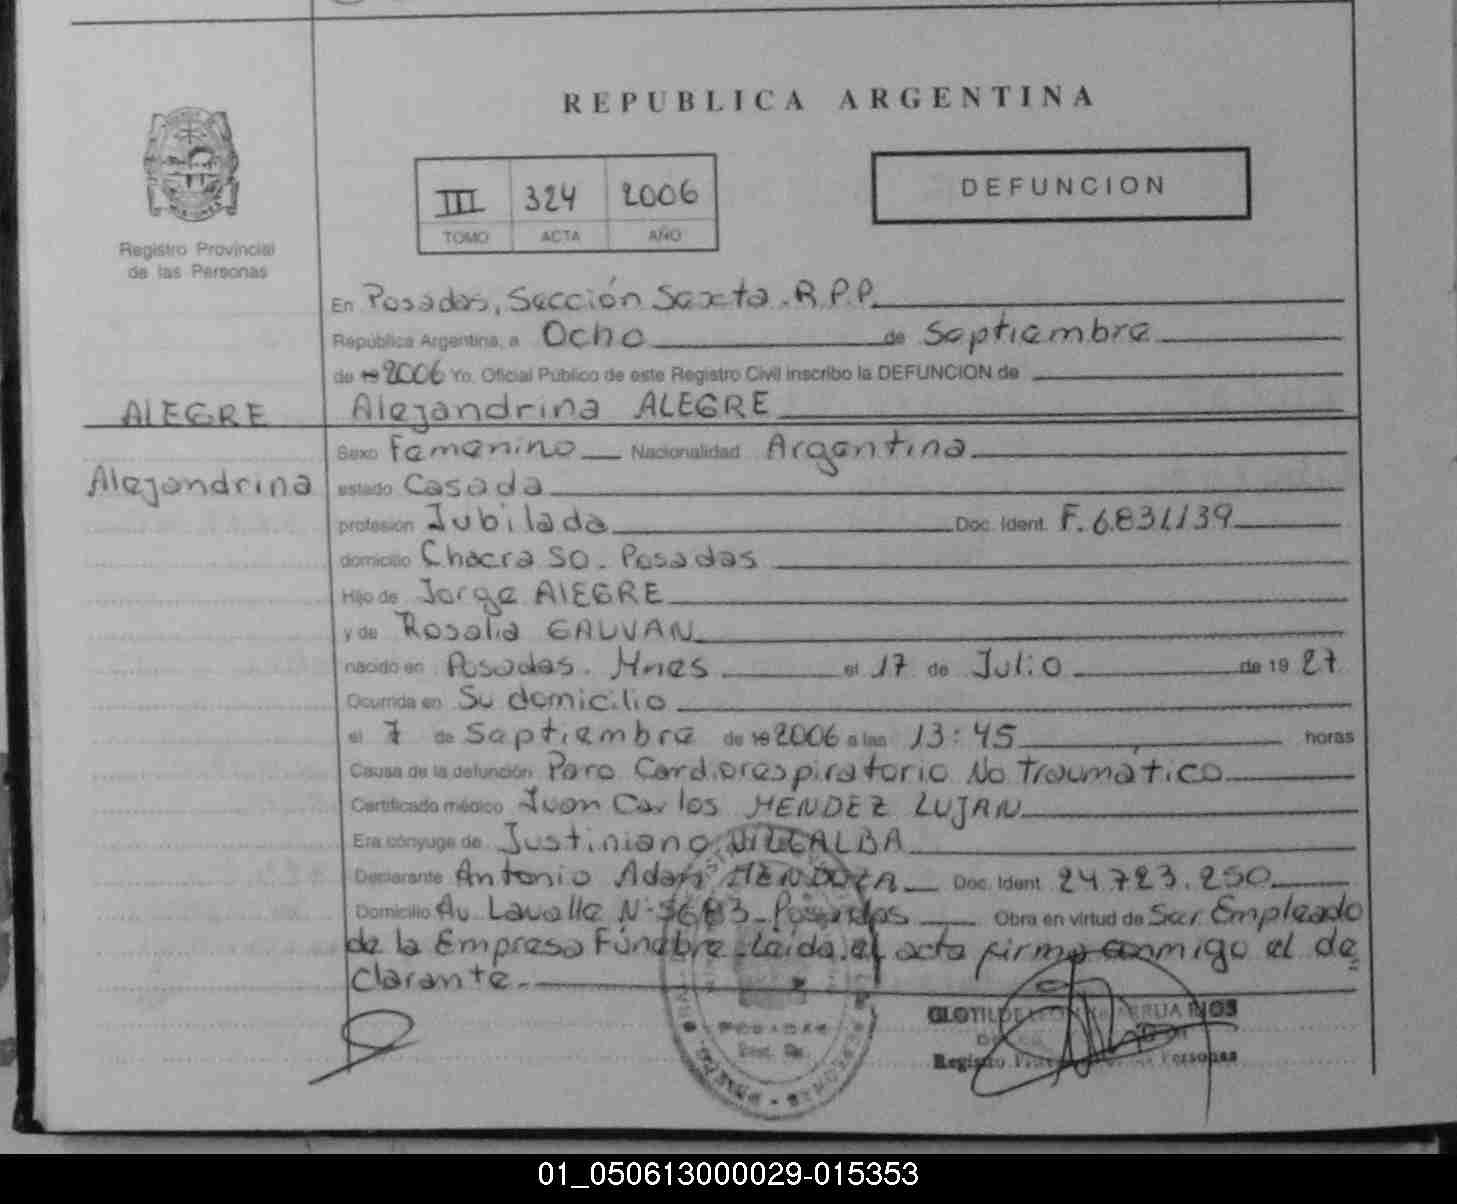 REPUBLICA ARGENTINA
III 324 2006
TOMO ACTA AÑO
DEFUNCION
Registro Provincial
de las Personas
En Posadas, Sección Sexta. R.P.P.
República Argentina, a Ocho de Septiembre
de 19 2006 Yo, Oficial Público de este Registro Civil inscribo la DEFUNCION de
ALEGRE
Alejandrina
Alejandrina ALEGRE
Sexo Femenino Nacionalidad Argentina
estado Casada
profesión Jubilada Doc. Ident. F.6.831.139
domicilio Chacra 50. Posadas
Hijo de Jorge AlEGRE
y de Rosalia GALVAN
nacido en Posadas. Mnes el 17 de Julio de 19 27
Ocurrida en Su domicilio
el 7 de Septiembre de 19 2006 a las 13:45 horas
Causa de la defunción Paro Cardiorespiratorio No Traumatico
Certificado médico Juan Carlos MENDEZ LUJAN
Era cónyuge de Justiniano VILLALBA
Declarante Antonio Adan MENDOZA Doc. Ident. 24.723.250
Domicilio Av. Lavalle N-3683-Posadas Obra en virtud de Ser Empleado
de la Empresa Fúnebre. Leida el acta firma conmigo el de
clarante.
POSADAS
RIOS
Registro Personas
01_050613000029-015353